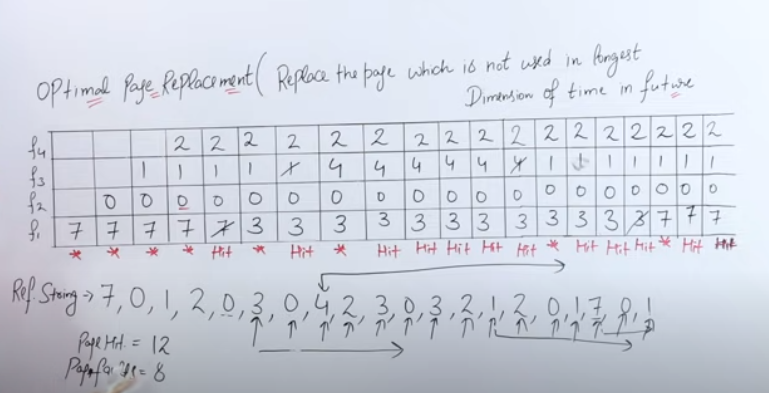 Optimal Page Replacement ( Replace the page which is not used in longest
Dimension of time in future
f4 2 2 2 2 2 2 2 2 2 2 2 2 2 2 2 2 2
f3 1 1 1 1 1 4 4 4 4 4 4 1 1 1 1 1 1
f2 0 0 0 0 0 0 0 0 0 0 0 0 0 0 0 0 0 0 0
f1 7 7 7 7 7 3 3 3 3 3 3 3 3 3 3 3 3 7 7 7
* * * * Hit * Hit * Hit Hit Hit Hit Hit * Hit Hit Hit * Hit Hit
Ref. String → 7, 0, 1, 2, 0, 3, 0, 4, 2, 3, 0, 3, 2, 1, 2, 0, 1, 7, 0, 1
Page Hit = 12
= 8